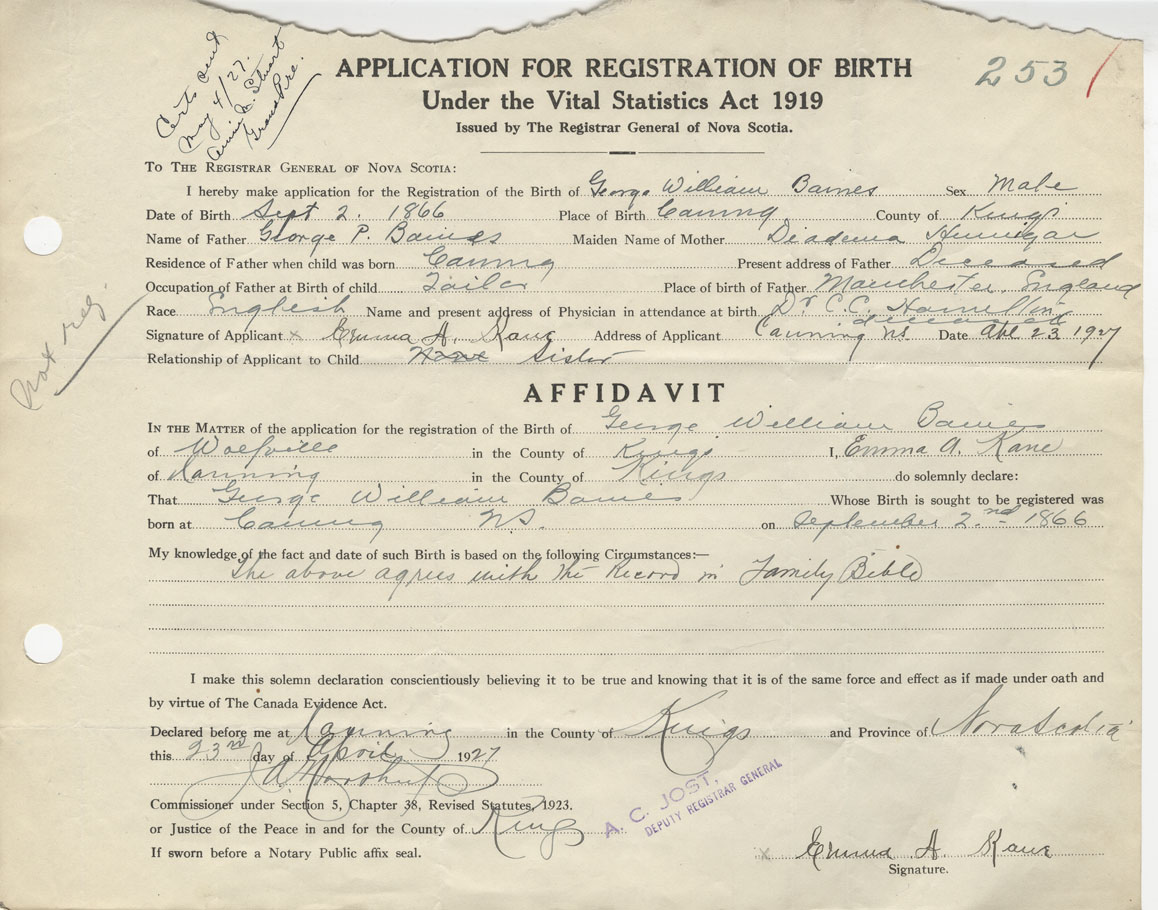 Certs sent
May 4/27.
Annie L. Stuart
Grand Pre.
APPLICATION FOR REGISTRATION OF BIRTH
253
Under the Vital Statistics Act 1919
Issued by The Registrar General of Nova Scotia.
TO THE REGISTRAR GENERAL OF NOVA SCOTIA:
I hereby make application for the Registration of the Birth of George William Baines Sex Male
Date of Birth Sept 2. 1866 Place of Birth Canning County of Kings
Name of Father George P. Baines Maiden Name of Mother Diadema Hennigar
Residence of Father when child was born Canning Present address of Father Deceased
Occupation of Father at Birth of child Tailor Place of birth of Father Manchester, England
Race English Name and present address of Physician in attendance at birth Dr C.C. Hamilton
deceased
Signature of Applicant x Emma A. Kane Address of Applicant Canning NS Date Apl 23 1927
Relationship of Applicant to Child Sister
not reg.
AFFIDAVIT
IN THE MATTER of the application for the registration of the Birth of George William Baines
of Wolfville in the County of Kings I, Emma A. Kane
of Kanning in the County of Kings do solemnly declare:
That George William Baines Whose Birth is sought to be registered was
born at Canning NS. on September 2nd 1866
My knowledge of the fact and date of such Birth is based on the following Circumstances:—
The above agrees with the Record in Family Bible
I make this solemn declaration conscientiously believing it to be true and knowing that it is of the same force and effect as if made under oath and
by virtue of The Canada Evidence Act.
Declared before me at Canning in the County of Kings and Province of Nova Scotia
this 23rd day of April 1927
Commissioner under Section 5, Chapter 38, Revised Statutes, 1923.
or Justice of the Peace in and for the County of Kings
A. C. JOST,
DEPUTY REGISTRAR GENERAL
If sworn before a Notary Public affix seal.
x Emma A. Kane
Signature.